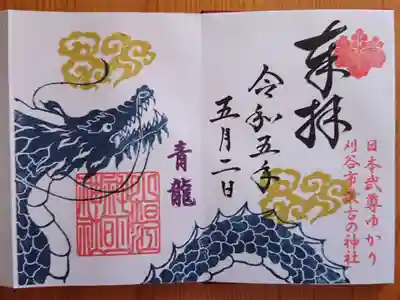 奉拝
日本武尊ゆかり
刈谷市最古の神社
令和五年
五月二日
青龍